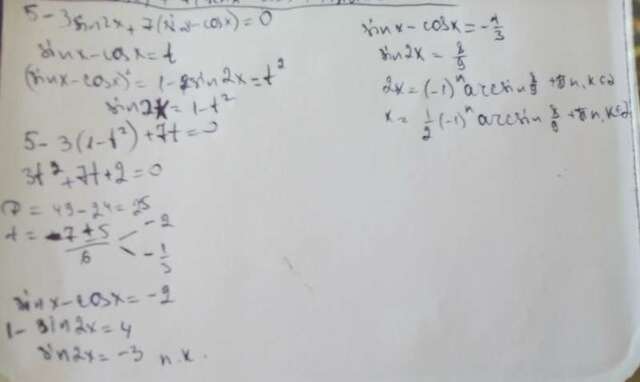 5 - 3sin2x + 7(sinx - cosx) = 0
sinx - cosx = t
(sinx - cosx)² = 1 - sin2x = t²
sin2x = 1 - t²
5 - 3(1 - t²) + 7t = 0
3t² + 7t + 2 = 0
D = 49 - 24 = 25
t = (-7 ± 5)/6 < -2
-1/3
sinx - cosx = -2
1 - sin2x = 4
sin2x = -3 n.k.
sinx - cosx = -1/3
sin2x = 8/9
2x = (-1)ⁿ arcsin 8/9 + πn, k∈Z
x = 1/2 (-1)ⁿ arcsin 8/9 + πn, k∈Z